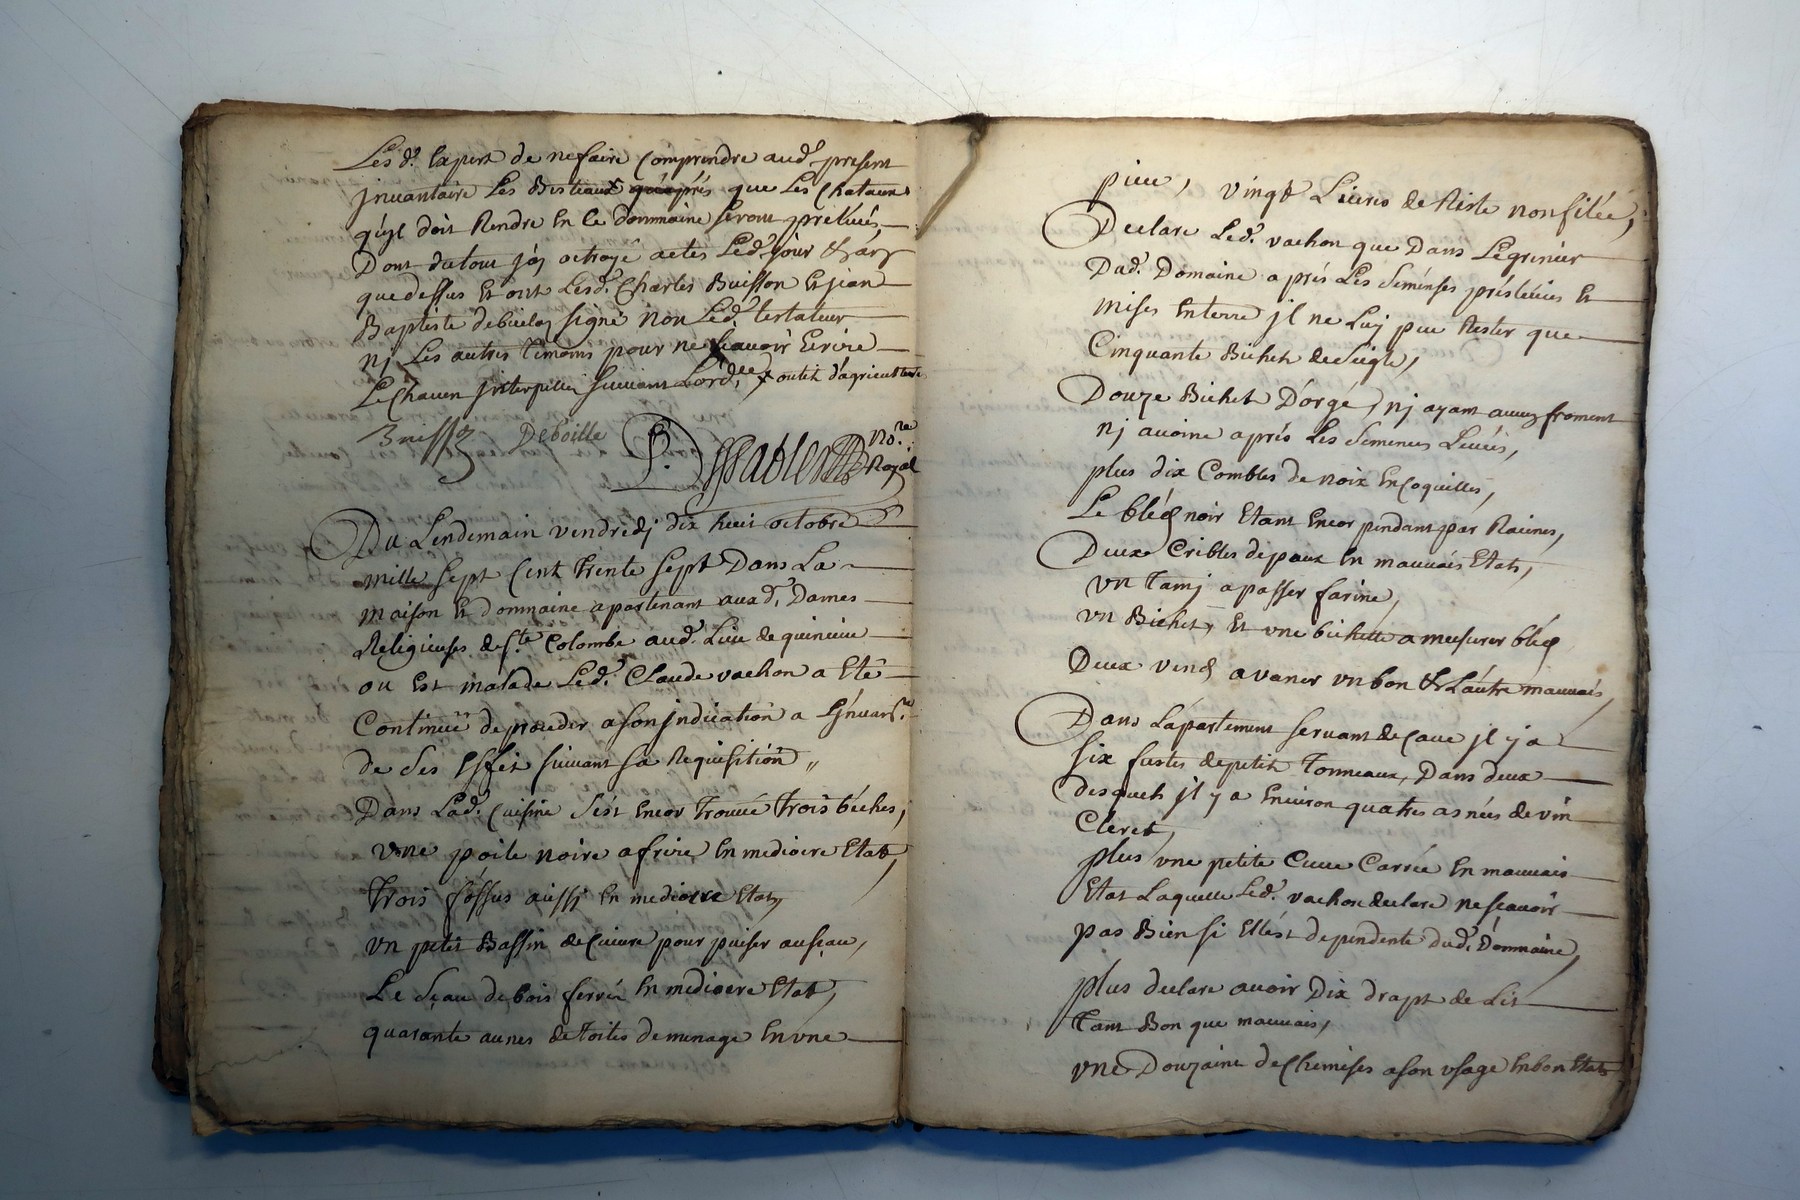 Les d. Expert de ne faire Comprendre aud. present
jnuantaire Les Bestiaux que Les Chataux
qu'yl doit Rendre En Ce dommaine seront prelevés
Dont du tout j'ay octroyé actes Led. jour & an
que dessus Et ont Lesd. Charles Buisson Et jean
Baptiste signé non Led. testateur
nj Les autres temoins pour ne scavoir Ecrire
Le Chacun jnterpellé suivant L'ord.ce outit d'agriculture
Buisson Deboille No.re
Royal
Du Lendemain vendredj dix huit octobre
mille sept Cent trente sept Dans La
maison Et dommaine apartenant auxd. Dames
Religieuses de S.te Colombe aud. Lieu de
ou Est malade Led. Claude vachon a Eté
Continué de proceder a son jndication a
de ses Effet suivant sa Requisition
Dans Lad. Cuisine s'est Encor trouvé trois béches,
vne poile noire a frire En mediocre Etat,
trois fossus aussj En mediocre Etat,
vn petit Bassin de Cuivre pour puiser au seau,
Le Seau de bois ferré En mediocre Etat,
quarante aunes de toiles de menage En vne
piece, vingt Livres de Riste non filée,
Declare Led. vachon que Dans Le grenier
Dud. Domaine aprés Les Seménses préslevées Et
mises En terre jl ne Luj peu Rester que
Cinquante Bichet de Seigle,
Douze Bichet D'orge, nj ayant aucun froment
nj avoine aprés Les Semences Levées,
plus dix Combles de noix En Coquilles,
Le bléd noir Etant Encor pendant par Racines,
Deux Cribles de paux En mauvais Etat,
vn tamj a passer farine,
vn Bichet, Et vne bichette a mesurer bléd
Deux vend a vaner vn bon & L'autre mauvais,
Dans L'apartement servant de Cave jl y a
six fustes de petit tonneaux, Dans deux
desquels jl y a Environ quatres asnées de vin
Cleret,
plus vne petite Cuve Carrée En mauvais
Etat Laquelle Led. vachon declare ne scavoir
pas Bien si Ell'ést dependente dud. Dommaine,
plus declare avoir Dix drapt de Lit
tant Bon que mauvais,
vne Douzaine de Chemises a son vsage En bon Etat